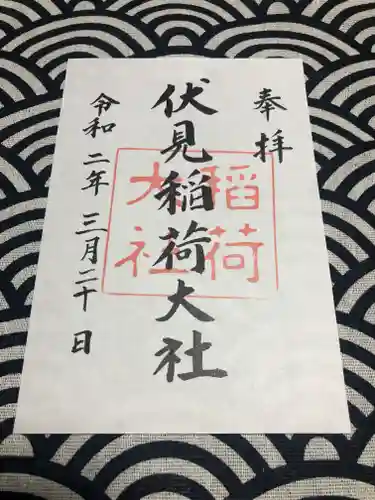 奉拝
伏見稲荷大社
稲荷
大社
令和二年三月二十日